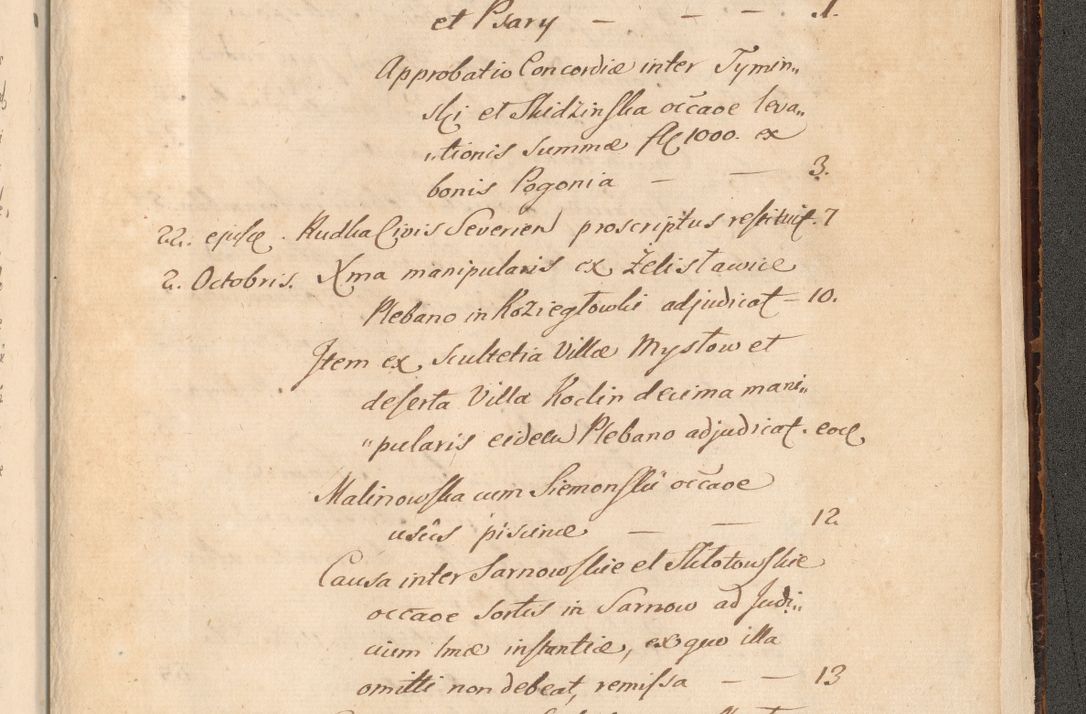 et Psary — — — 1.
Approbatio Concordiæ inter Tymin„
ski et Skidzinska occāoe leva„
„tionis Summæ fl 1000. ex
bonis Pogonia — — 3.
22. ejusd. Rudka Civis Severien proscriptus restituit. 7
2. Octobris. Xma manipularis ex Żelisławice
Plebano in Koziegłowki adjudicat — 10.
Item ex Scultetia Villæ Mysłow et
deserta Villa Koclin decima mani„
„pularis eidem Plebano adjudicat. eod.
Malinowska cum Siemonskii occāoe
usûs piscinæ — — 12.
Causa inter Sarnowskie et Sklotowskie
occāoe Sortis in Sarnow ad Judi„
cium Imæ instantiæ, ex quo illa
omitti non debeat, remissa — — 13